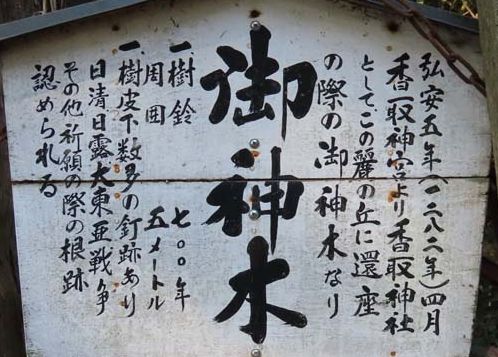 弘安五年(一二八二年)四月
香取神宮より香取神社
としてこの麗の丘に還座
の際の御神木なり
御神木
一、樹齢 七〇〇年
周囲 五メートル
一、樹皮下数多の釘跡あり
日清日露大東亜戦争
その他祈願の際の根跡
認められる